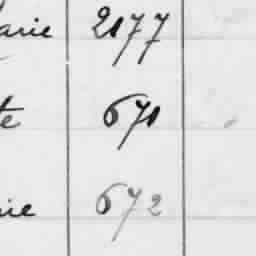 arie 2177
te 671
ie 672